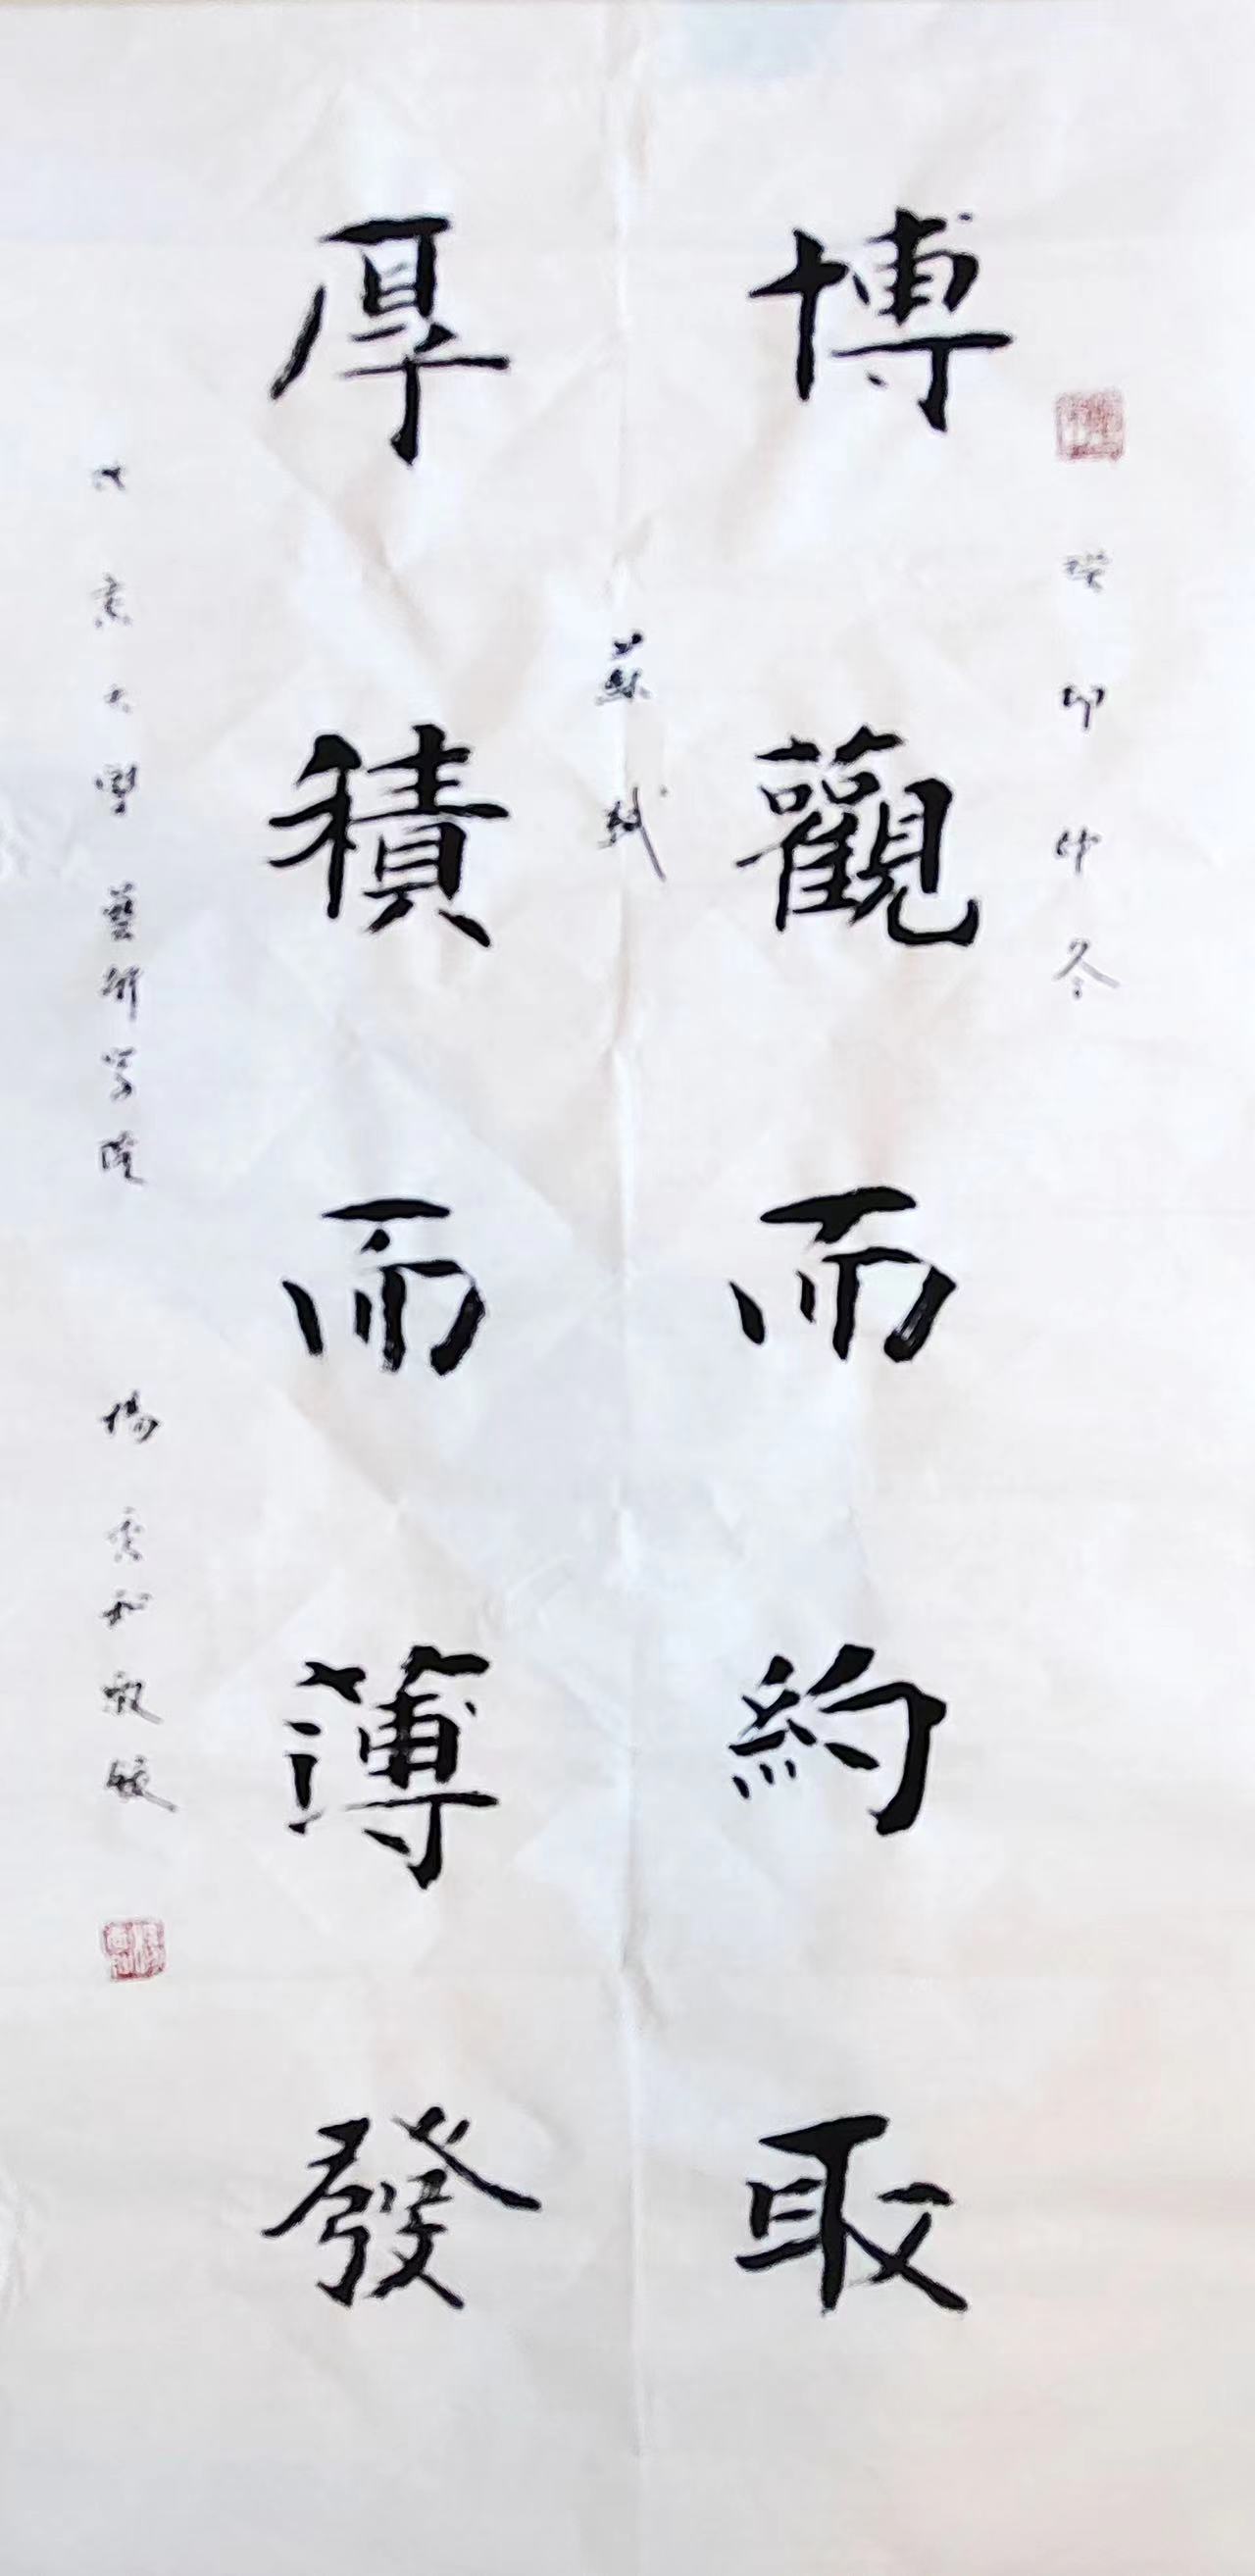 癸卯仲冬
博觀而約取
蘇軾
厚積而薄發
大學藝術学院
楊雲和敬錄